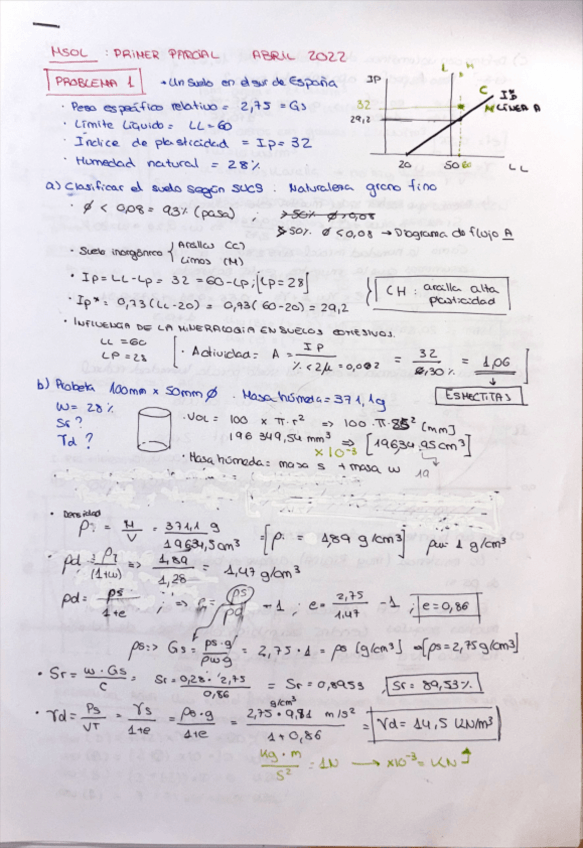 MSOL : PRIMER PARCIAL ABRIL 2022
PROBLEMA 1 • Un suelo en el sur de España
• Peso específico relativo = 2,75 = Gs
• Límite Líquido = LL = 60
• Índice de plasticidad = Ip = 32
• Humedad natural = 28%
IP
L H
C
M
LÍNEA A
32
29,2
20 50 60 LL
a) Clasificar el suelo según SUCS : Naturaleza grano fino
• ø < 0,08 = 93% (pasa) ; > 50% ø > 0,08
> 50% ø < 0,08 → Diagrama de flujo A
• Suelo inorgánico { Arcillas (C)
Limos (M)
• Ip = LL - Lp = 32 = 60 - Lp ; [Lp = 28]
• Ip* = 0,73 (LL-20) = 0,73 (60-20) = 29,2
CH : arcilla alta plasticidad
• INFLUENCIA DE LA MINERALOGIA EN SUELOS COHESIVOS.
LL = 60
LP = 28
• Actividad: A = IP / % < 2μ = 0,002 = 32 / 0,30% = 1,06
ESMECTITAS
b) Probeta 100mm x 50mm ø • Masa húmeda = 371,1g
W = 28%
Sr ?
γd ?
• VOL = 100 x π·r² ⇒ 100·π·25² [mm]
196 349,54 mm³ ⇒ [19634,95 cm³]
x10⁻³
• Masa húmeda = masa s + masa w
• Densidad
ρ = M / V = 371,1 g / 19634,5 cm³ = [ρ = 1,89 g/cm³] ρw = 1 g/cm³
• ρd = ρ / (1+w) ⇒ 1,89 / 1,28 = 1,47 g/cm³
ρd = ρs / 1+e ; ⇒ e = ρs / ρd - 1 ; e = 2,75 / 1,47 - 1 ; e = 0,86
ρs => Gs = ρs·g / ρw·g = 2,75 · 1 = ρs [g/cm³] ⇒ [ρs = 2,75 g/cm³]
• Sr = w·Gs / e = Sr = 0,28·2,75 / 0,86 = Sr = 0,8953 , Sr = 89,53%
• γd = Ps / VT = γs / 1+e = ρs·g / 1+e = 2,75·9,81 m/s² / 1+0,86 = γd = 14,5 KN/m³
g/cm³
Kg·m / s² = 1N → x10⁻³ = KN